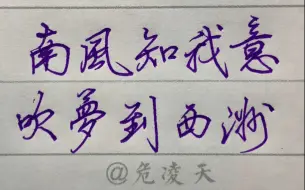 南風知我意
吹夢到西洲
@危凌天